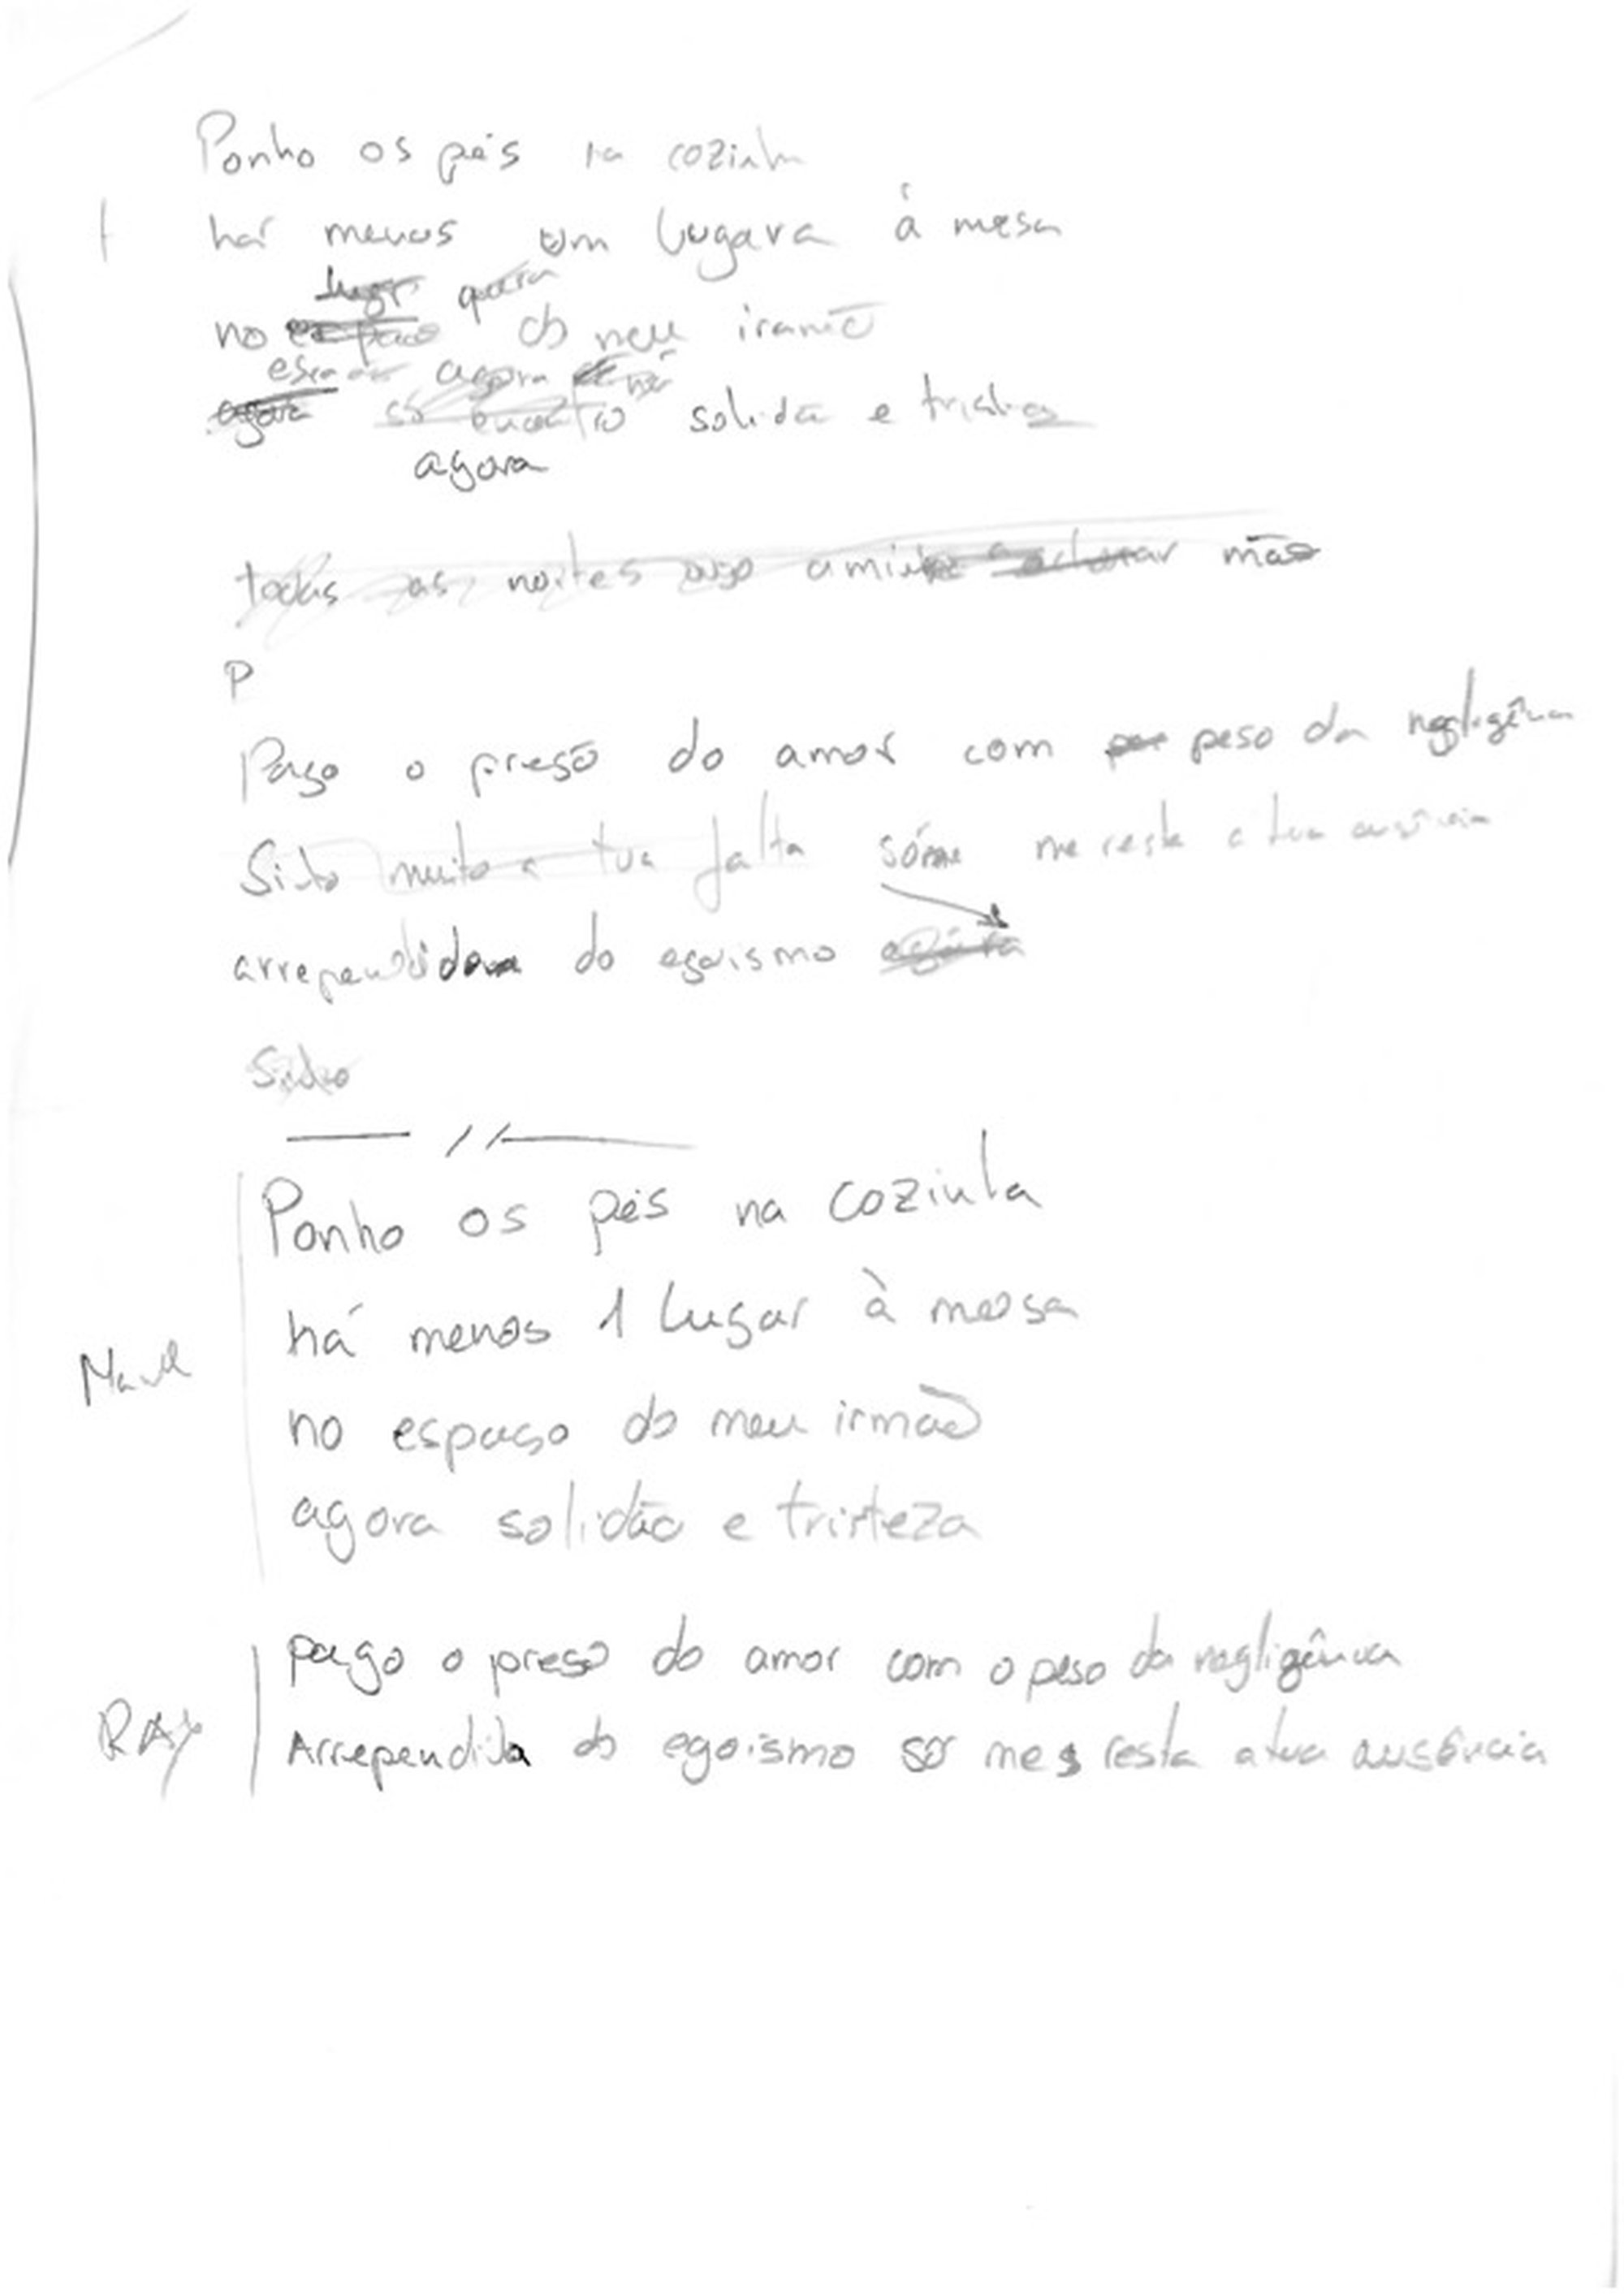 Ponho os pés na cozinha
há menos um lugar à mesa
lugar quara
no espaço do meu irmão
agora
agora só encontro solidão e tristeza
agora
todas as noites ouço a minha a chorar mãe
P
Pago o preso do amor com por peso da negligência
Sinto muito a tua falta só me me resta a tua ausência
arrependida do egoismo agora
Sinto
//
Ponho os pés na cozinha
há menos 1 lugar à messa
no espaso do meu irmao
agora solidão e tristeza
Pago o preso do amor com o peso da negligência
RAP
Arrependida do egoismo só me resta a tua ausência